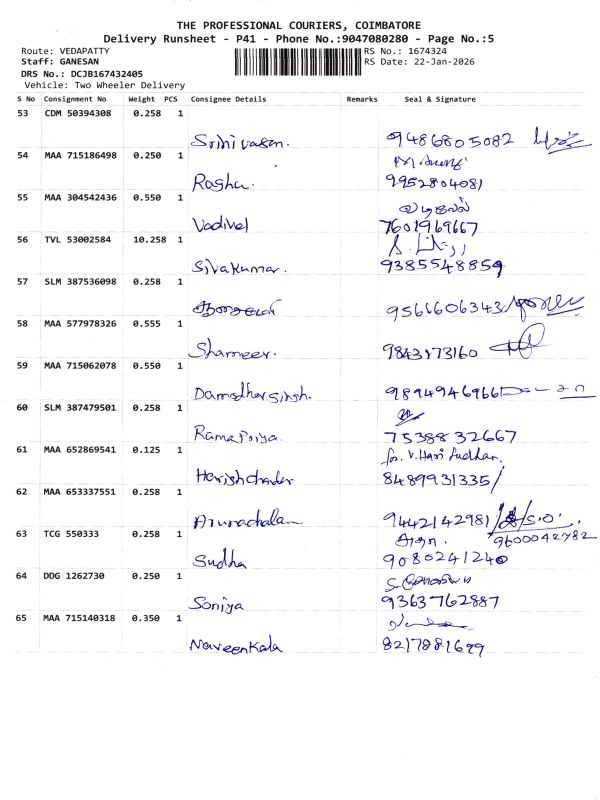 THE PROFESSIONAL COURIERS, COIMBATORE
Delivery Runsheet - P41 - Phone No.:9047080280 - Page No.:5
Route: VEDAPATTY RS No.: 1674324
Staff: GANESAN RS Date: 22-Jan-2026
DRS No.: DCJB167432405
Vehicle: Two Wheeler Delivery
S No Consignment No Weight PCS Consignee Details Remarks Seal & Signature
53 CDM 50394308 0.258 1
Srinivasan. 9486805082
54 MAA 715186498 0.250 1
Rasha. 9952804081
55 MAA 304542436 0.550 1
வடிவேல்
Vadivel 7601969667
56 TVL 53002584 10.258 1
Sivakumar. 9385548859
57 SLM 387536098 0.258 1
9566606343
58 MAA 577978326 0.555 1
Shameer. 9843173160
59 MAA 715062078 0.550 1
Damodhersingh. 9894946966
60 SLM 387479501 0.258 1
Ramapriya. 7538832667
61 MAA 652869541 0.125 1
for. V. Hari Sudhan.
Harishchander 8489931335/
62 MAA 653337551 0.258 1
Arunachalam 9442142981/ S.O.
63 TCG 550333 0.258 1
9600042782
Sudha 9080241240
64 DDG 1262730 0.250 1
Soniya 9363762887
65 MAA 715140318 0.350 1
Naveenkala 8217881699